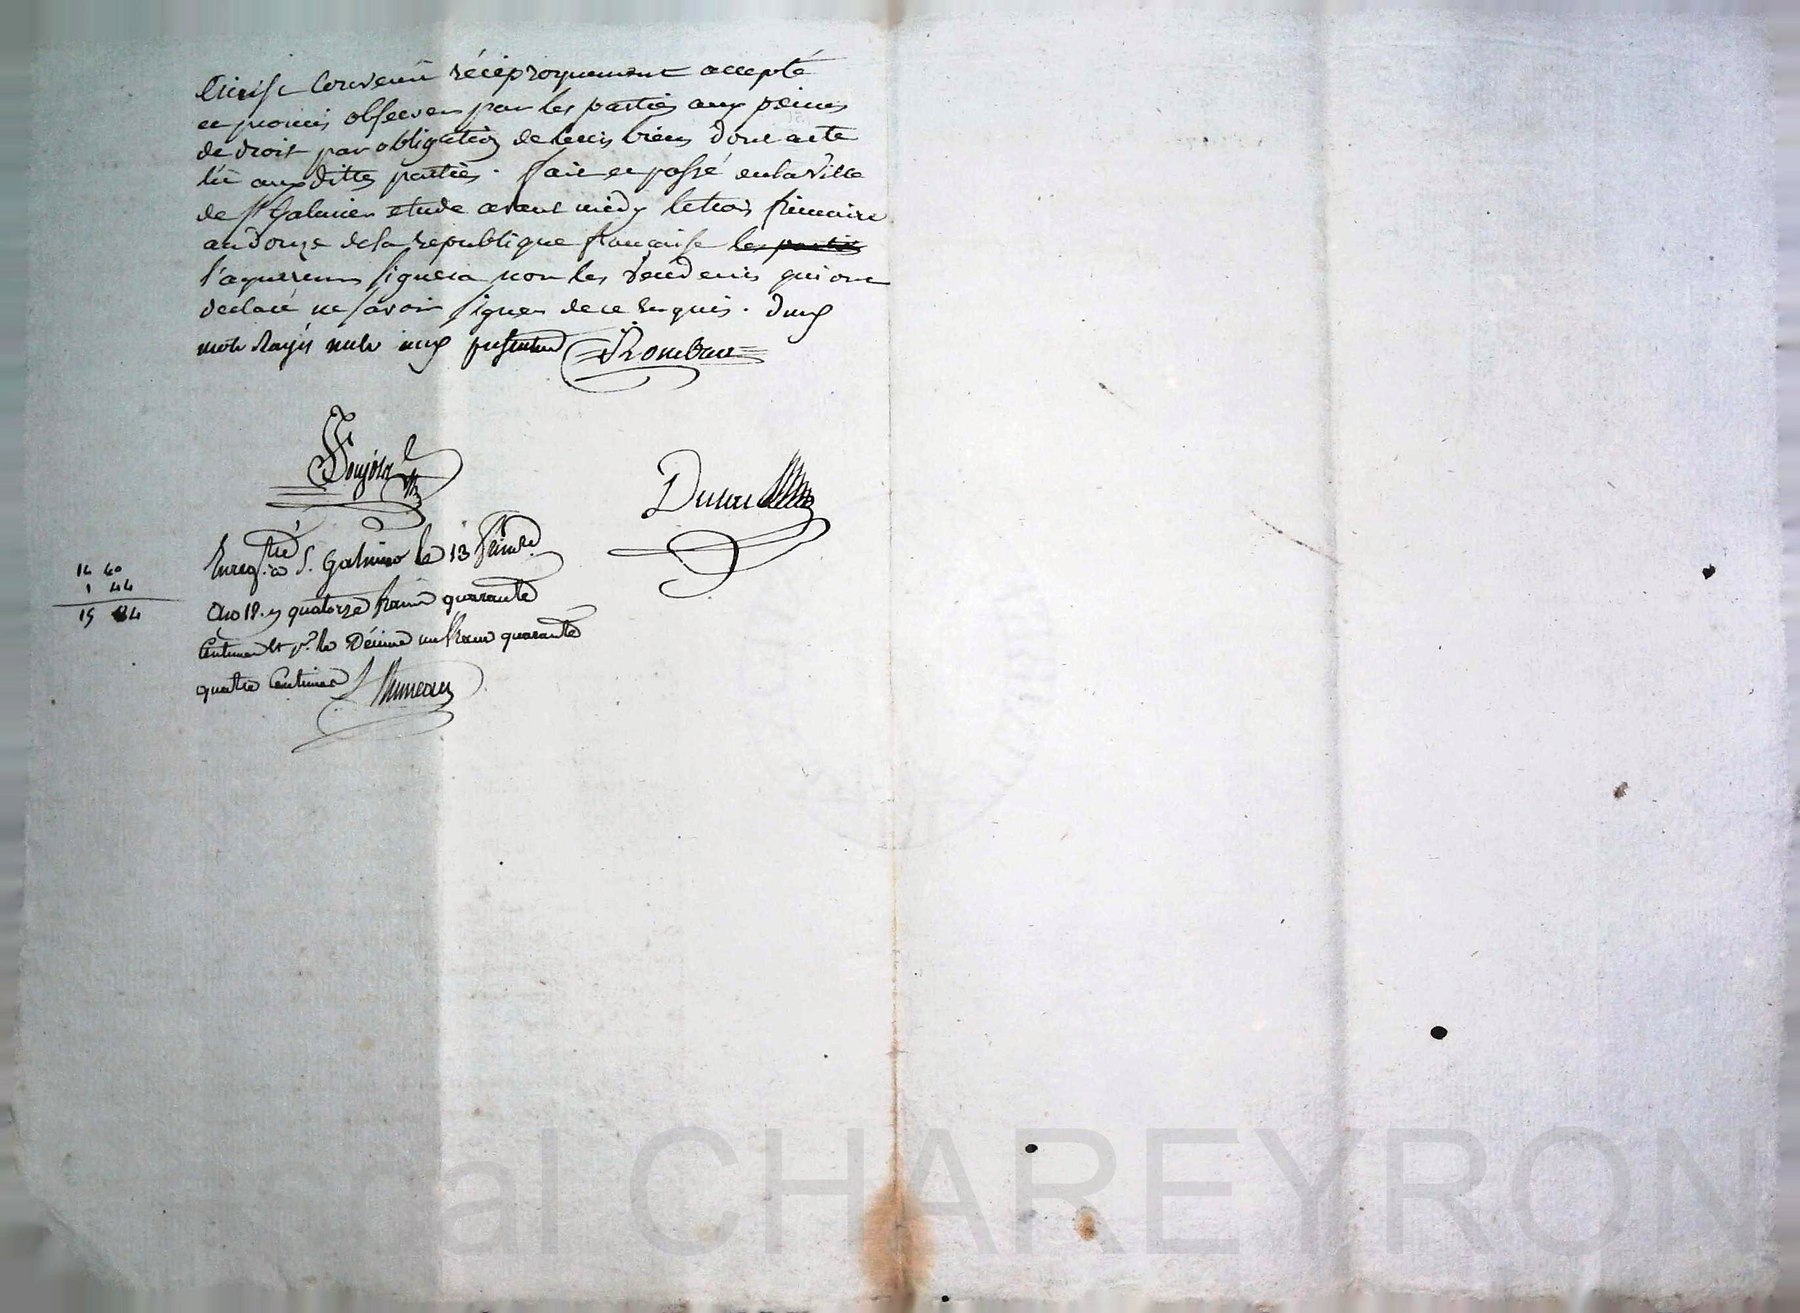 Ainsi convenu réciproquement accepté
et promis observer par les parties aux peines
de droit par obligation de leurs biens dont acte
lu aux dittes parties. fait et passé en la ville
de St Galmier etude avant midy le trois frimaire
an douze de la republique française les parties
l'aquereur signera non les vendeurs qui ont
declaré ne savoir signer de ce requis. deux
mots rayés nuls aux presentes
Enregtré à St. Galmier le 13 frimre
an 12. quatorze francs quarante
Centimes et pr. le Décime un franc quarante
quatre Centimes
14 40
1 44
15 84
scal CHAREYRON